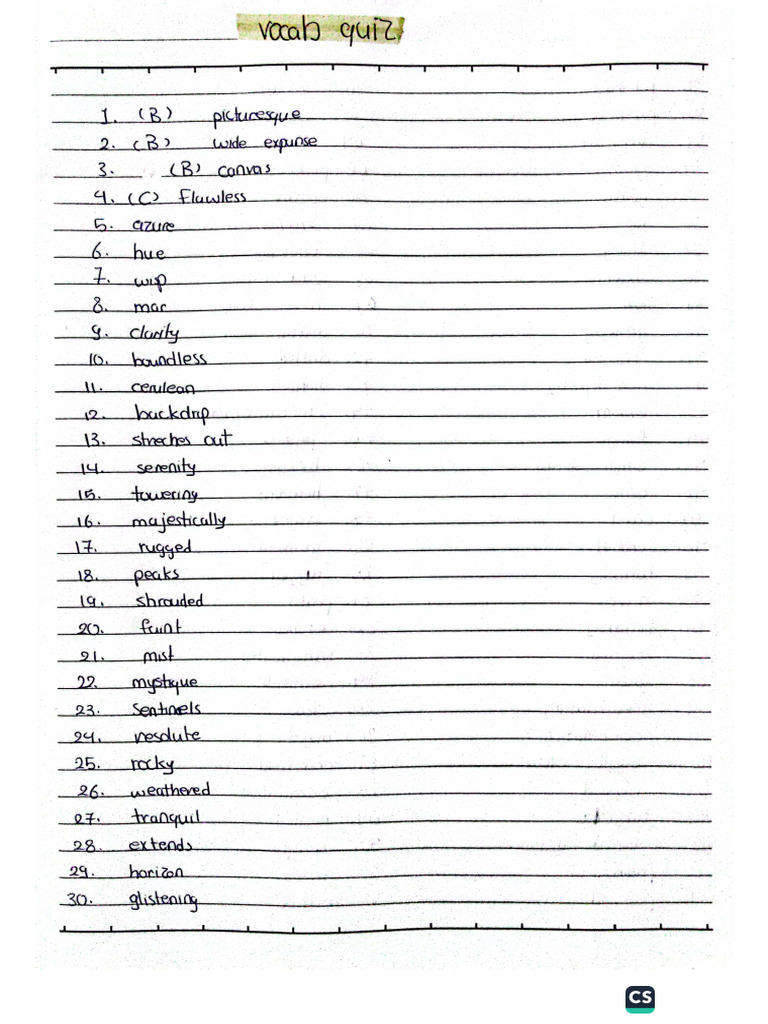 vocab quiz
1. (B) picturesque
2. (B) wide expanse
3. (B) canvas
4. (C) Flawless
5. azure
6. hue
7. wisp
8. mar
9. clarity
10. boundless
11. cerulean
12. backdrop
13. streches out
14. serenity
15. towering
16. majestically
17. rugged
18. peaks
19. shrouded
20. faint
21. mist
22. mystique
23. Sentinels
24. resolute
25. rocky
26. weathered
27. tranquil
28. extends
29. horizon
30. glistening
CS